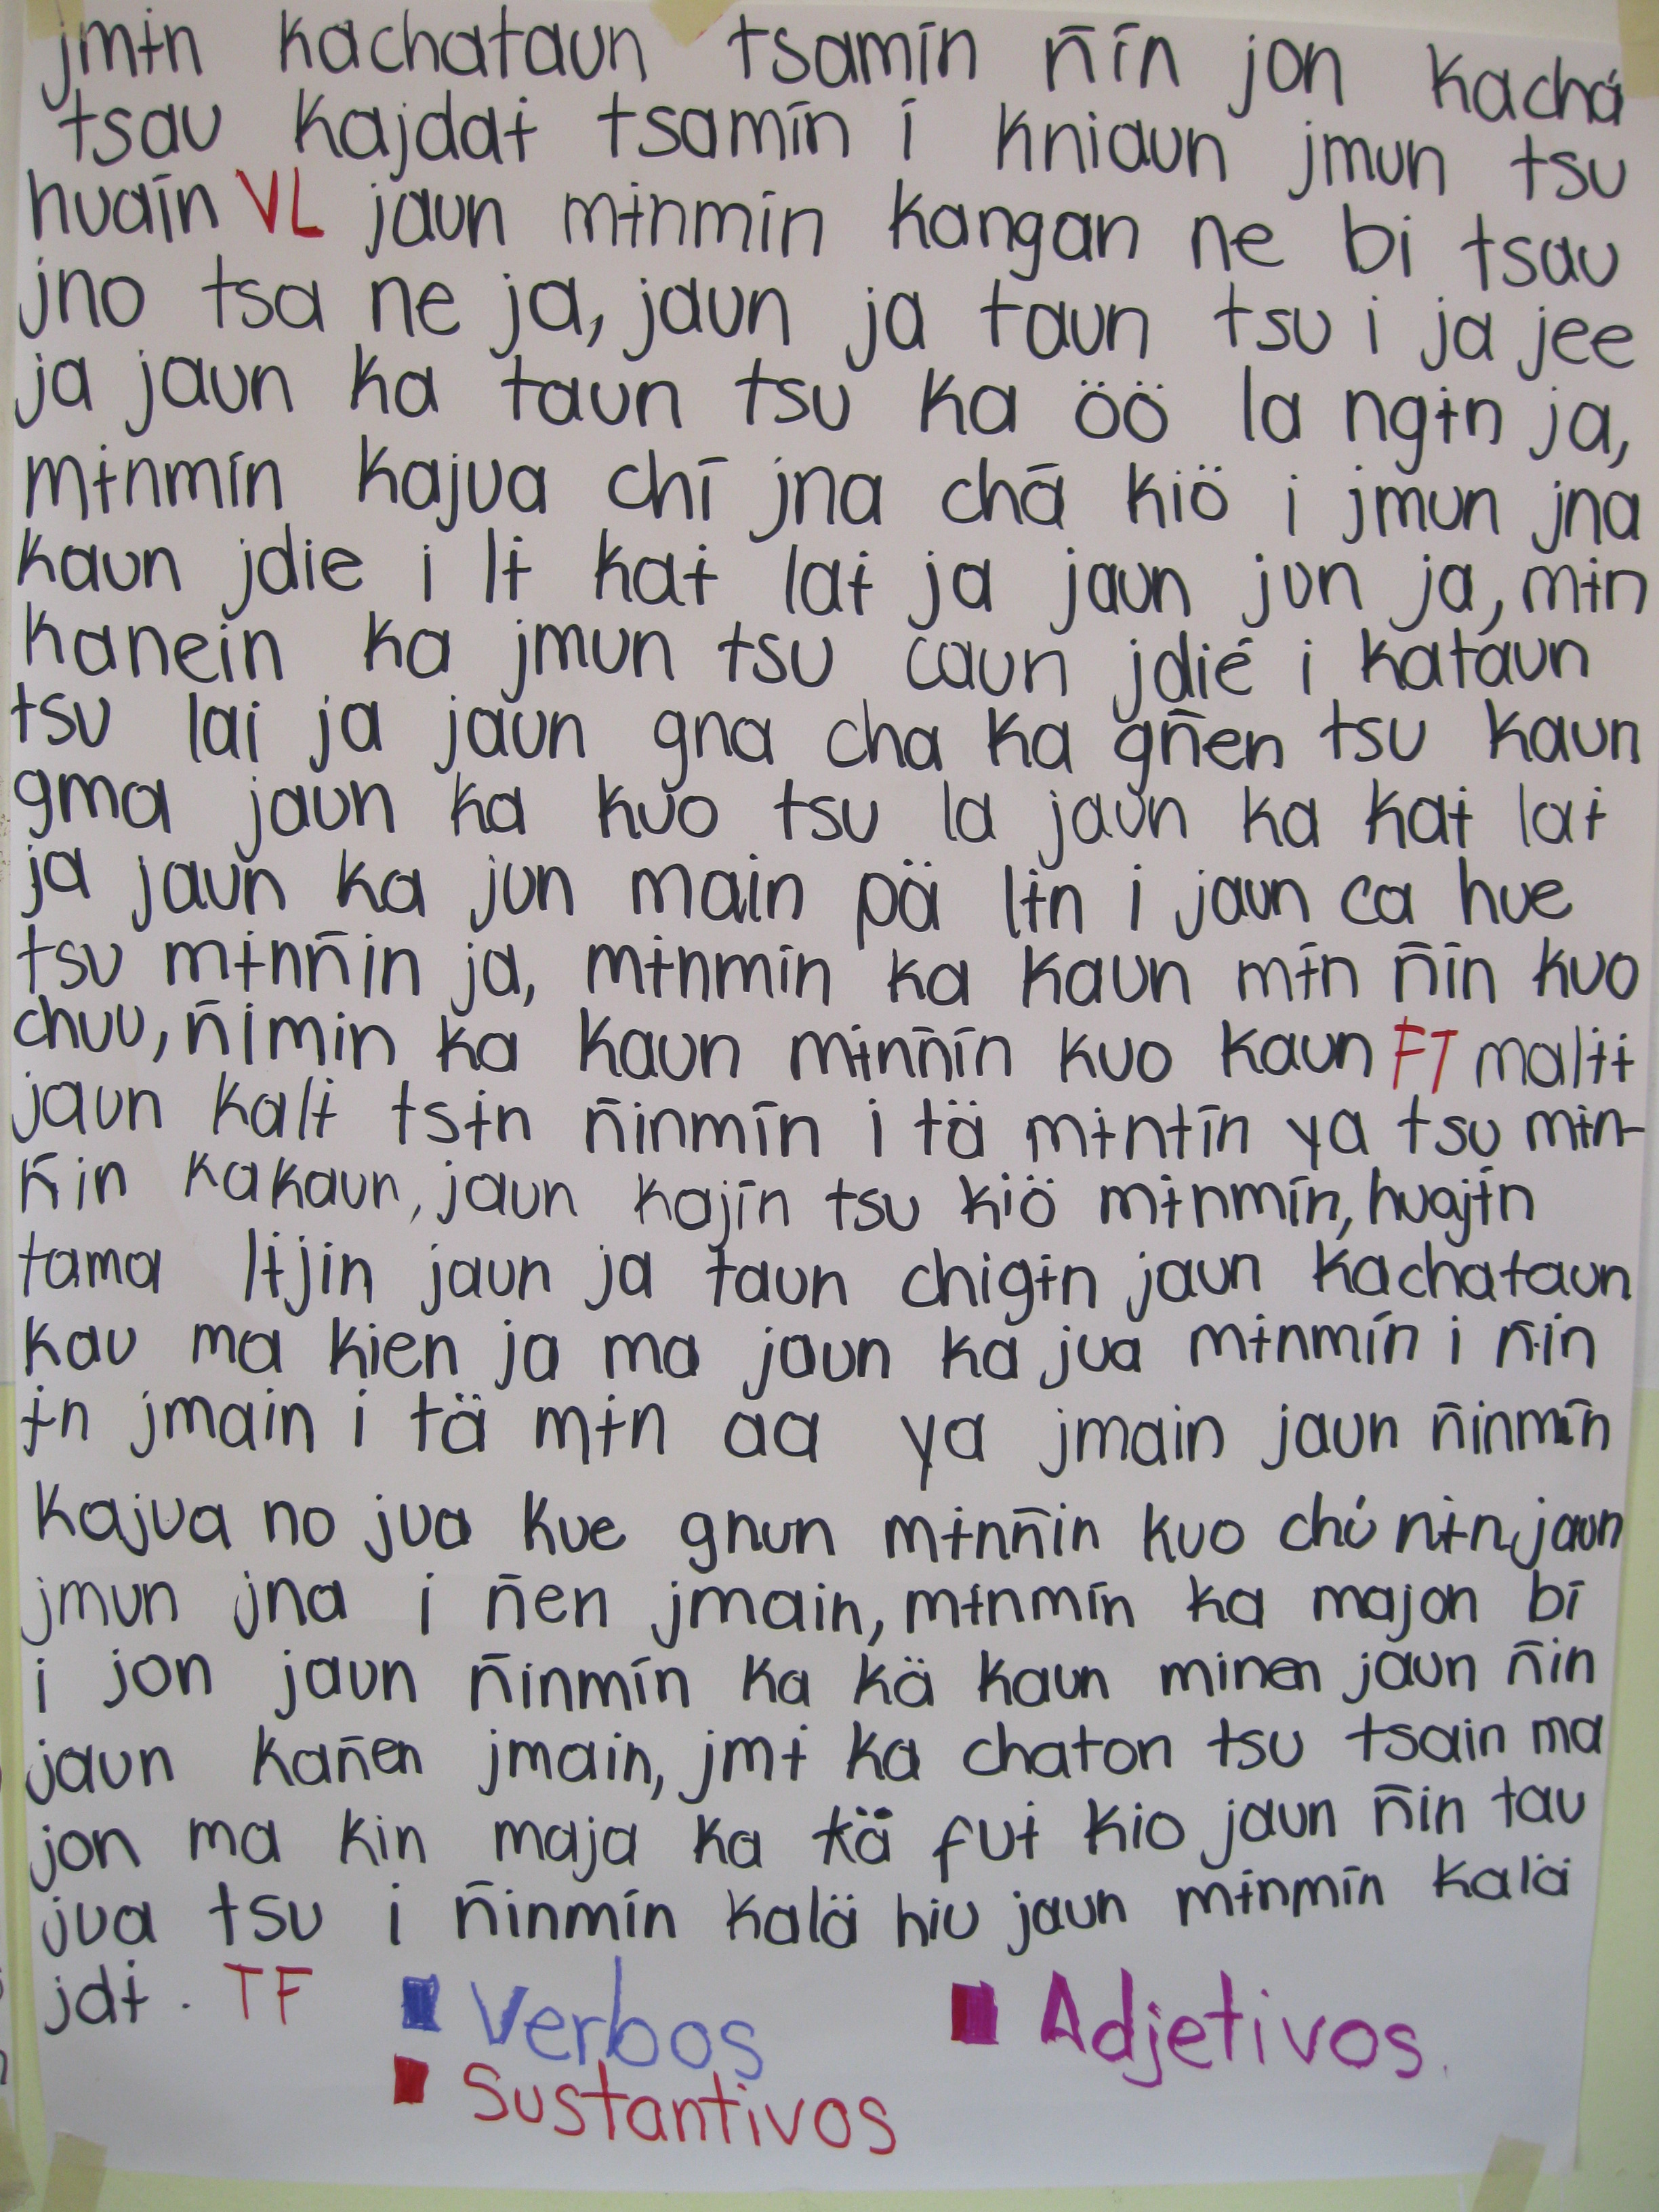 jmɨn kachataun tsamīn ñīn jon kachá
tsau kajdaɨ tsamīn i kniaun jmun tsu
huaīn VL jaun mɨnmīn kangan ne bi tsau
jno tsa ne ja, jaun ja taun tsu i ja jee
ja jaun ka taun tsu ka öö la ngɨn ja,
mɨnmīn kajua chī jna chā kiö i jmun jna
kaun jdie i lɨ kaɨ laɨ ja jaun jun ja, mɨn
kanein ka jmun tsu caun jdié i kataun
tsu lai ja jaun gna cha ka gñen tsu kaun
gma jaun ka kuo tsu la jaun ka kaɨ laɨ
ja jaun ka jun main pä lɨn i jaun ca hue
tsu mɨnñin ja, mɨnmīn ka kaun mɨn ñīn kuo
chuu, ñimin ka kaun mɨnñīn kuo kaun FT malɨɨ
jaun kalɨ tsɨn ñinmīn i tä mɨntīn ya tsu mɨn-
ñin kakaun, jaun kajīn tsu kiö mɨnmīn, huajɨn
tama lɨjin jaun ja taun chigɨn jaun kachataun
kau ma kien ja ma jaun ka jua mɨnmín i ñin
ɨn jmain i tä mɨn aa ya jmain jaun ñinmīn
kajua no jua kue gnun mɨnñin kuo chú nɨn, jaun
jmun jna i ñen jmain, mɨnmín ka majon bī
i jon jaun ñinmīn ka kä kaun minen jaun ñin
jaun kañen jmain, jmɨ ka chaton tsu tsain ma
jon ma kin maja ka kä fuɨ kio jaun ñin tau
jua tsu i ñinmīn kalä hiu jaun mɨnmīn kalä
jdɨ. TF
Verbos Adjetivos.
Sustantivos